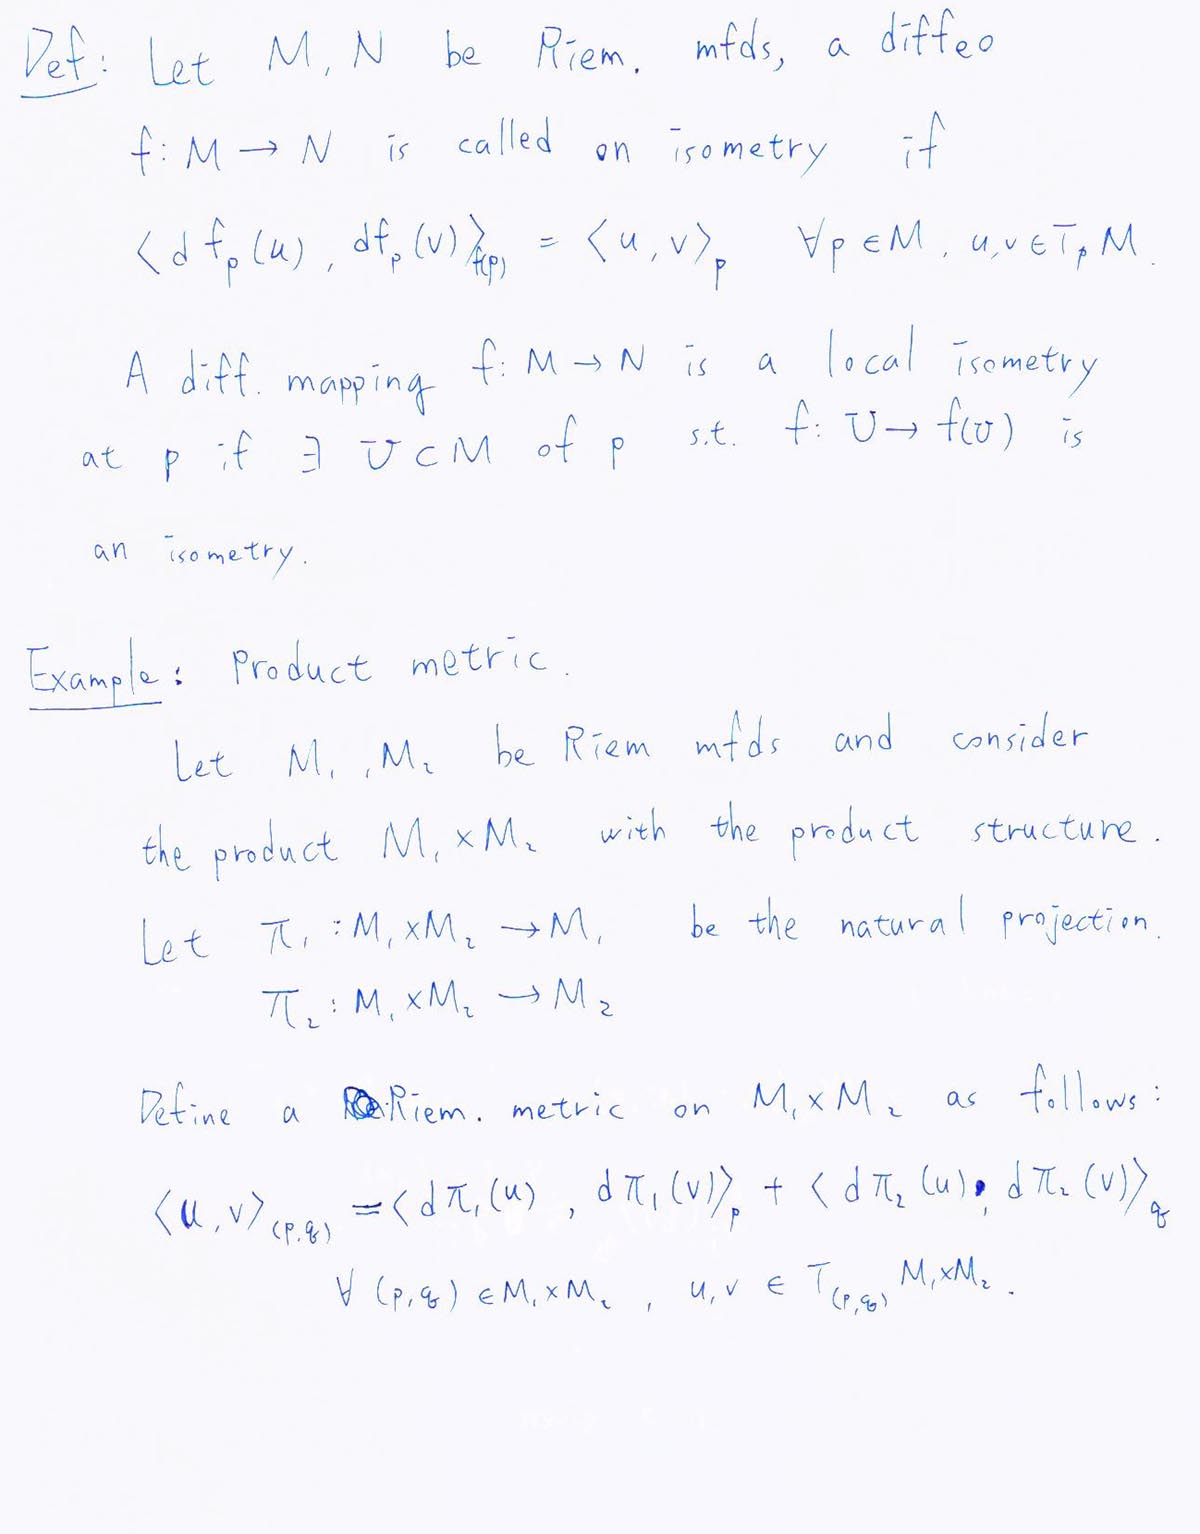 Def: Let M, N be Riem. mfds, a diffeo
f: M → N is called on isometry if
⟨df_p(u), df_p(v)⟩_{f(p)} = ⟨u, v⟩_p ∀p∈M, u,v∈T_pM.
A diff. mapping f: M → N is a local isometry
at p if ∃ U⊂M of p s.t. f: U → f(U) is
an isometry.
Example: Product metric.
Let M₁, M₂ be Riem mfds and consider
the product M₁×M₂ with the product structure.
Let π₁: M₁×M₂ → M₁ be the natural projection.
π₂: M₁×M₂ → M₂
Define a Riem. metric on M₁×M₂ as follows:
⟨u,v⟩_{(p,q)} = ⟨dπ₁(u), dπ₁(v)⟩_p + ⟨dπ₂(u), dπ₂(v)⟩_q
∀ (p,q) ∈ M₁×M₂, u,v ∈ T_{(p,q)} M₁×M₂.